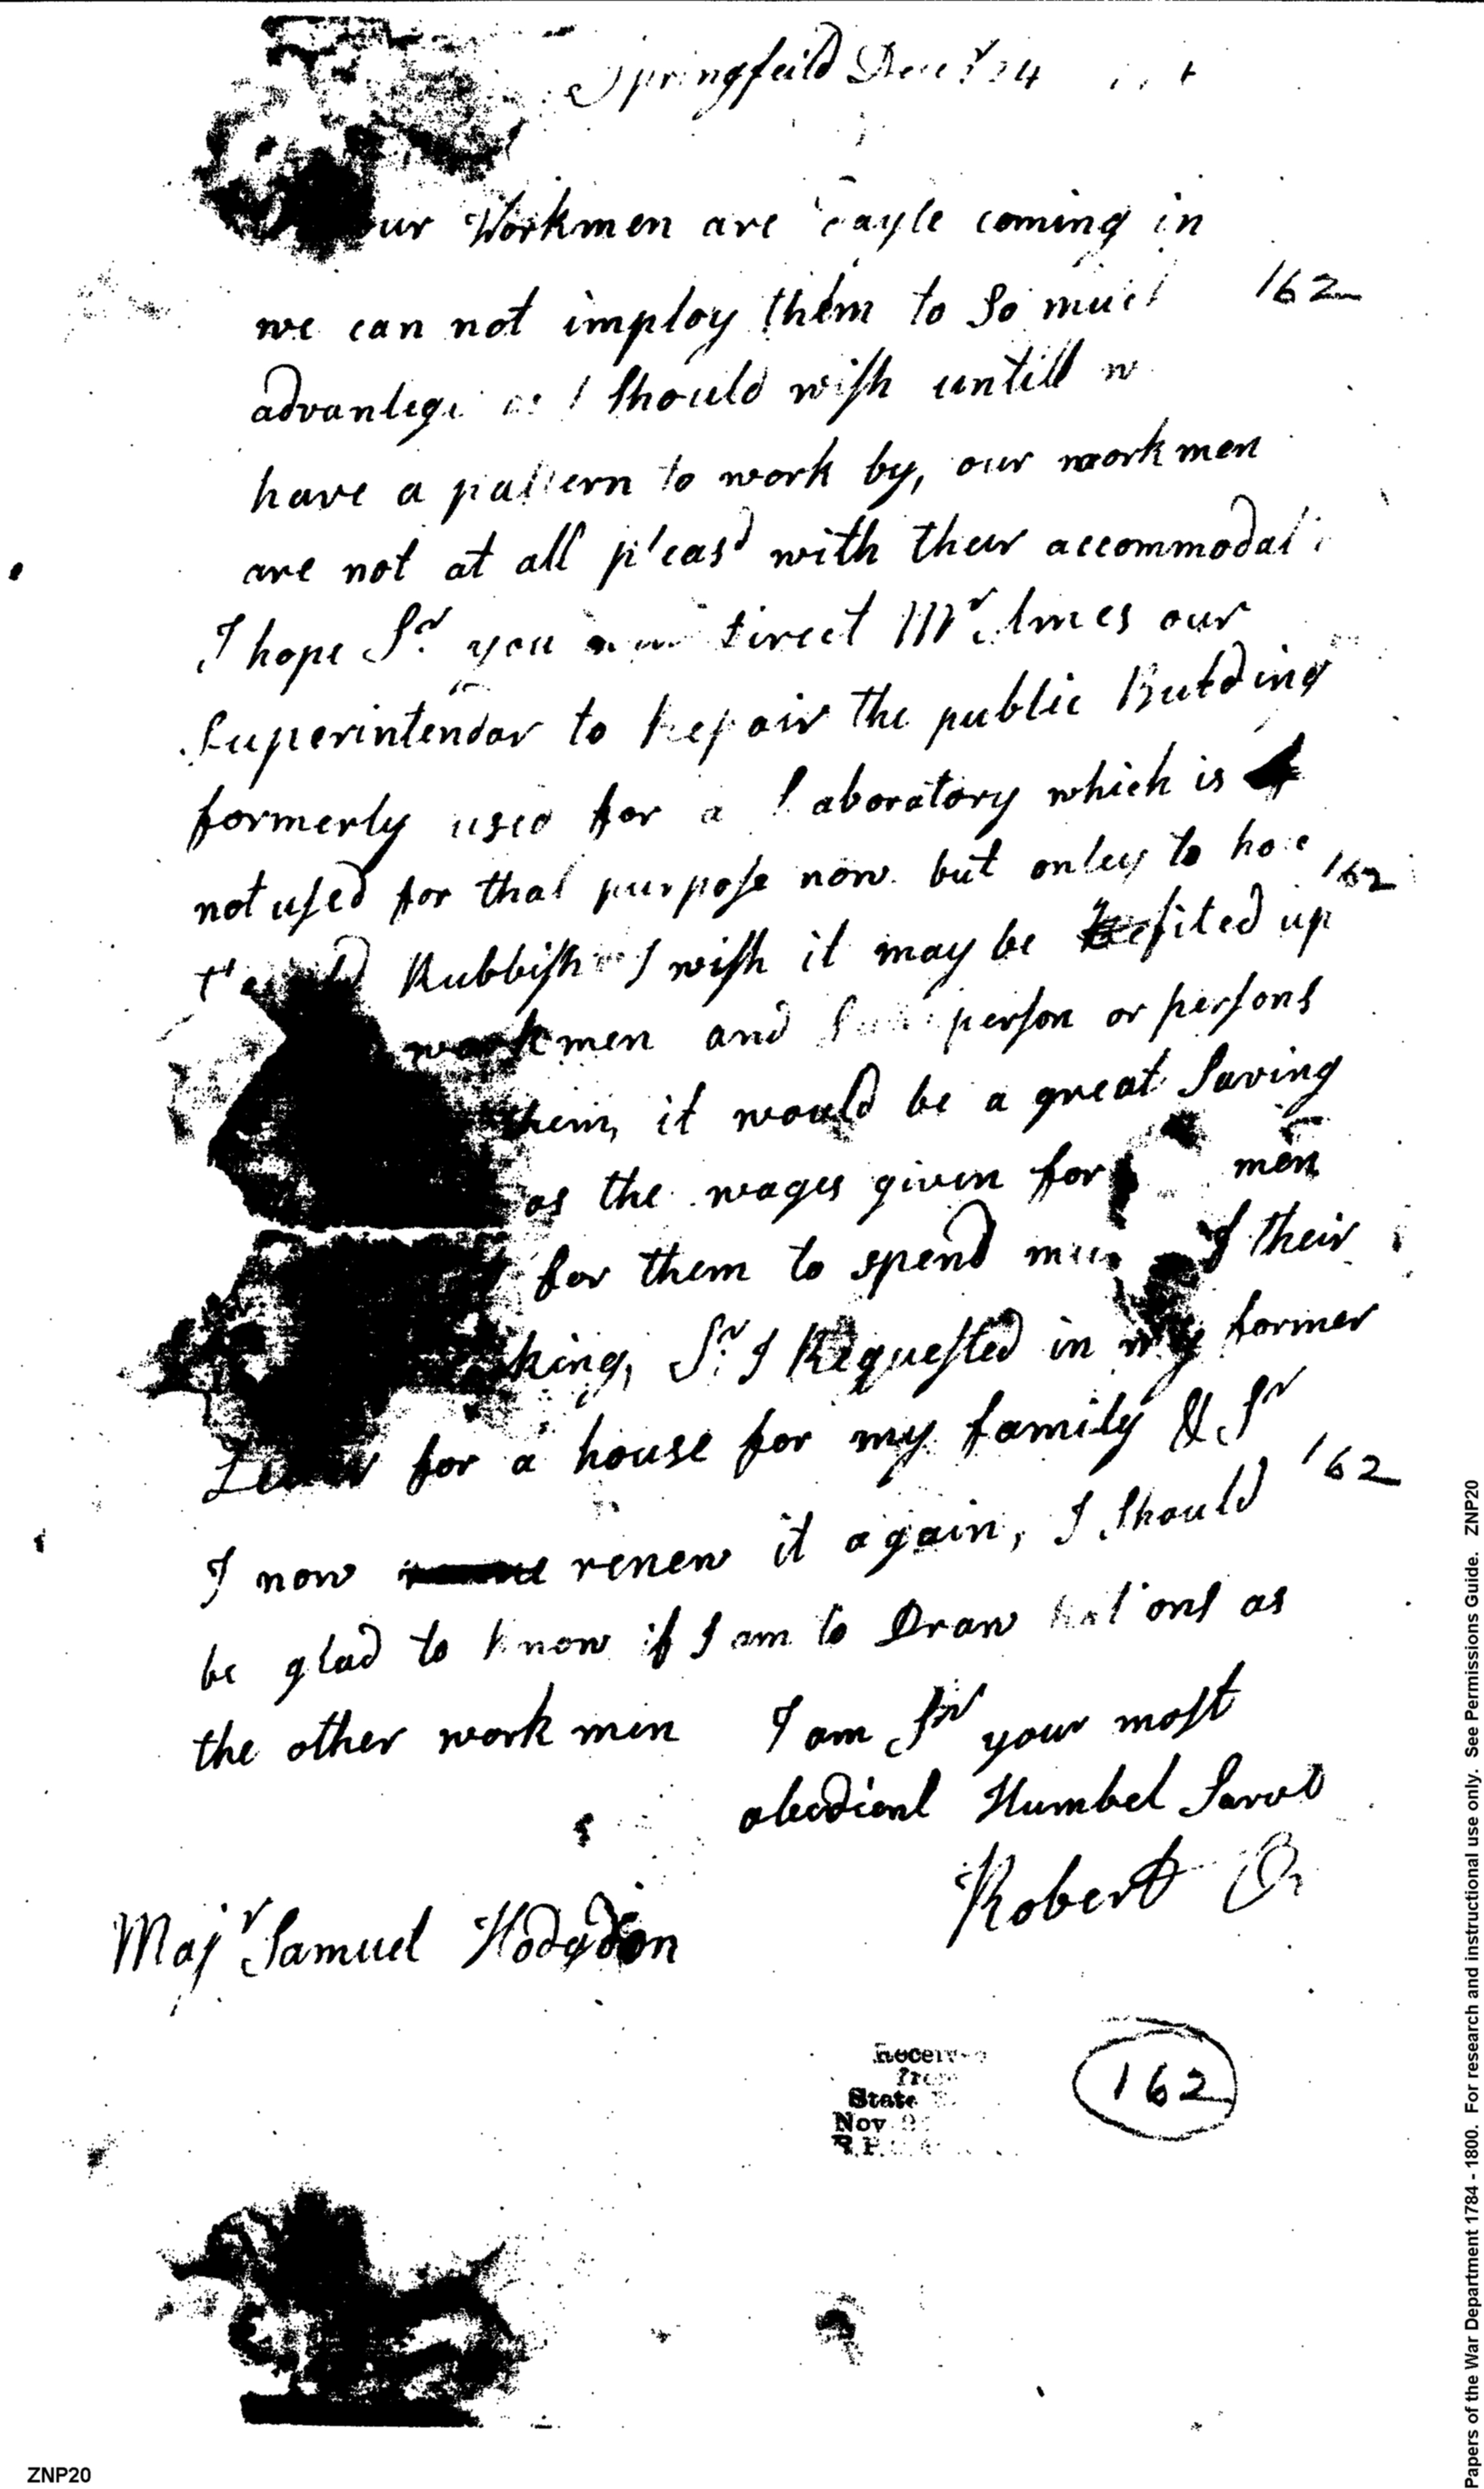 Springfeild Decr 24
Workmen are dayle coming in
we can not imploy them to So much
162
advantage as I Should wish untill
have a pattern to work by, our workmen
are not at all pleasd with their
I hope Sr you direct Mr Ames our
Superintendar to Repair the public Bulding
formerly used for a Laboratory which is
not used for that purpose now but onley to
162
Rubbish I wish it may be fited up
workmen and person or persons
them, it would be a great Saving
as the wages given for men
for them to spend of their
king, Sr I Requested in my former
Letter for a house for my family & Sr
162
I now renew it again, I Should
be glad to know if I am to Draw Rations as
the other work men I am Sr your most
obedient Humbel Sarvt
Robert
Majr Samuel Hodgdon
Received
from
State
Nov
162
ZNP20
Papers of the War Department 1784 - 1800. For research and instructional use only. See Permissions Guide. ZNP20